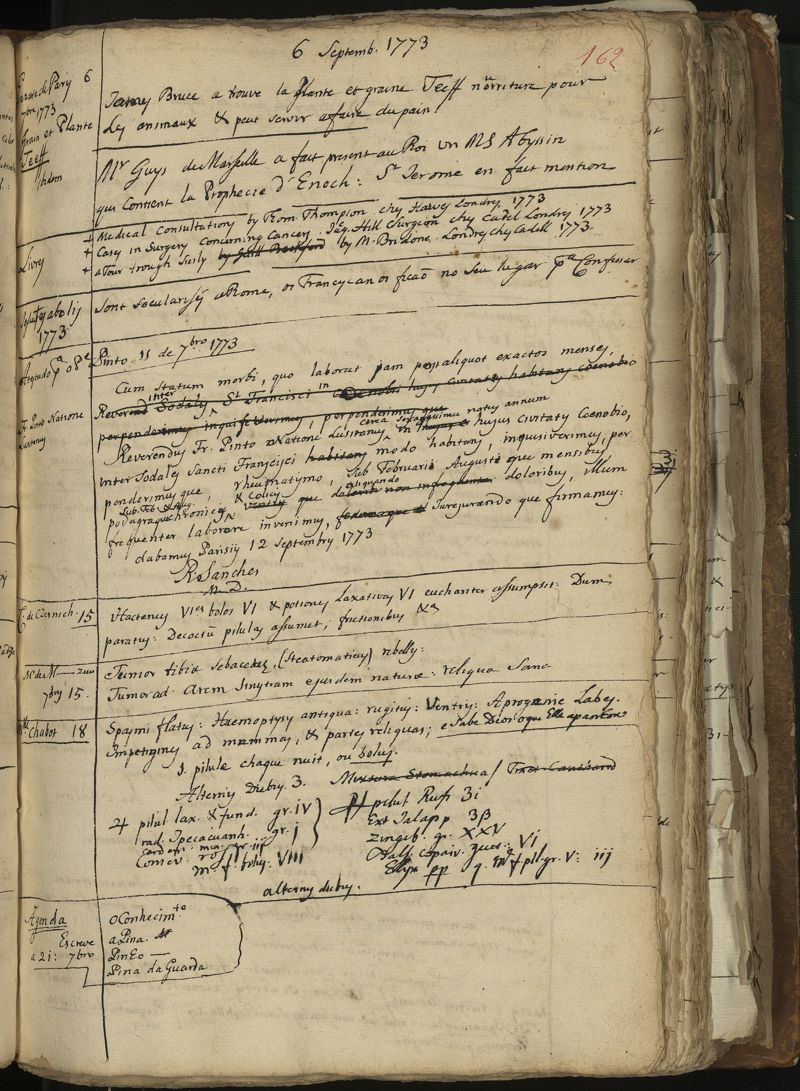 6 Septemb. 1773
162
de Pary 6
1773
Grain et Plante
Teeff
James Bruce a trouvé la Plante et graine Teeff nourriture pour
les animaux & peut servir a faire du pain.
Mr Guys de Marseille a fait present au Roi un MS Abyssin
qui Contient la Prophecie d'Enoch: St Jerome en fait mention
Livres
+ Medical Consultations by Thom Thompson. chez Hawes Londres 1773
+ Cases in Surgery Concerning Cancers. Jas. Hill Surgeon chez Cadel Londres 1773
+ a Tour trough Sicily by M. Bridone. Londres chez Cadell 1773
1773
sont secularisés a Rome, os Franciscanos ficaõ no seu lugar pa Confessar
Attestado pa o Pe Pinto 11 de 7bro 1773
Fr. Pinto Natione
Lusitanus
Cum statum morbi, quo laborat jam per aliquot exactos menses,
Reverend inter Sodales St Francisci in
perpendimus inquisiverimus, perpenderimus que
Reverendus Fr. Pinto Natione Lusitanus circa sexagesimum natus annum
inter Sodales Sancti Francisci habitans modo habitans, in hujus civitatis Coenobio,
inquisiverimus, per
ponderimus que, rheumatismo, sub Februarii, Augusti que mensibus,
podagraque chronica Sub. Feb. & Aug. & Colicis ventris que aliquando doloribus, illum
frequenter laborare invenimus, Jurejurando que firmamus:
dabamus Parisiis 12 Septembris 1773
R. Sanches
M. D.
C. de Czernich. 15
Hactenus VIes bolos VI & potiones Laxativas VI euchanter assumpsit: Dum
paratus: Decoctum pilulas assumet; frictionibus &a
Mr de M
7bris 15.
Tumor tibiæ sebaceus, (Steatomaticus) rebellis:
Tumor ad Aurem sinistram ejusdem naturæ: reliqua Sana
Chabot 18
Spasmi flatus: Haemoptysis antiqua: rugitus: Ventris: A progenie Labes.
Impetigines ad mammas, & partes reliquas; e Sabe Dios o que Elle apanhou
3. pilule chaque nuit, ou bolus.
Alternis Diebus 3.
Mixtura Stomachica
♃ pilul lax. & fund. gr. iv
rad. Ipecacuanh. gr. j
Conser. ros.
m f. bolus. VIII
pilul Rufi ʒi
Ext Jalapp ʒβ
Zingib. gr. XXV
Bals. Copaiv. guos. VI
Elix pp q. m f pll. gr. V: iij
alternis diebus.
Agenda
Escreve
a 21: 7bro
o Conhecimto
a Pina. M
Pinto —
Pina da Guarda